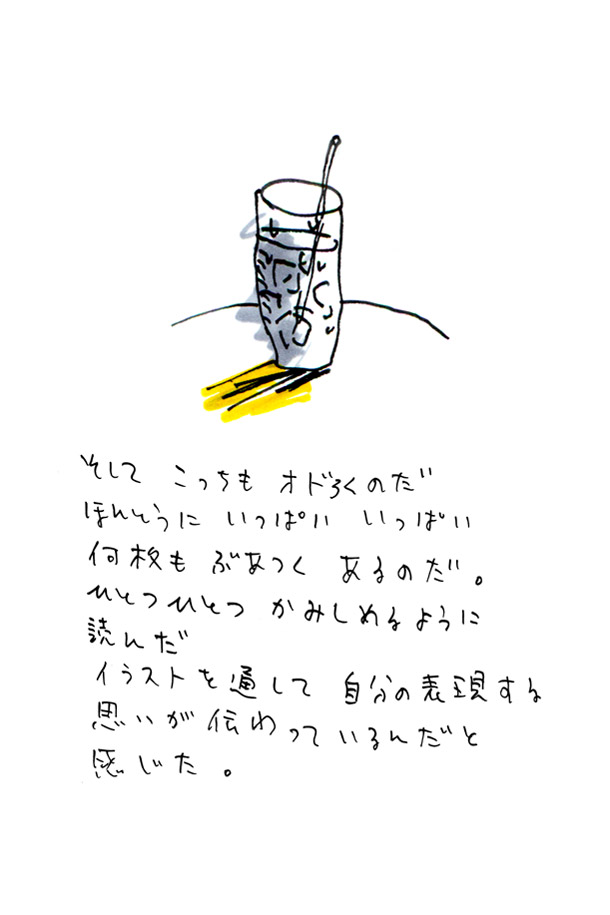 そして こっちも オドろくのだ
ほんとうに いっぱい いっぱい
何枚も ぶあつく あるのだ。
ひとつひとつ かみしめるように
読んだ
イラストを通して 自分の表現する
思いが 伝わっているんだと
感じた。